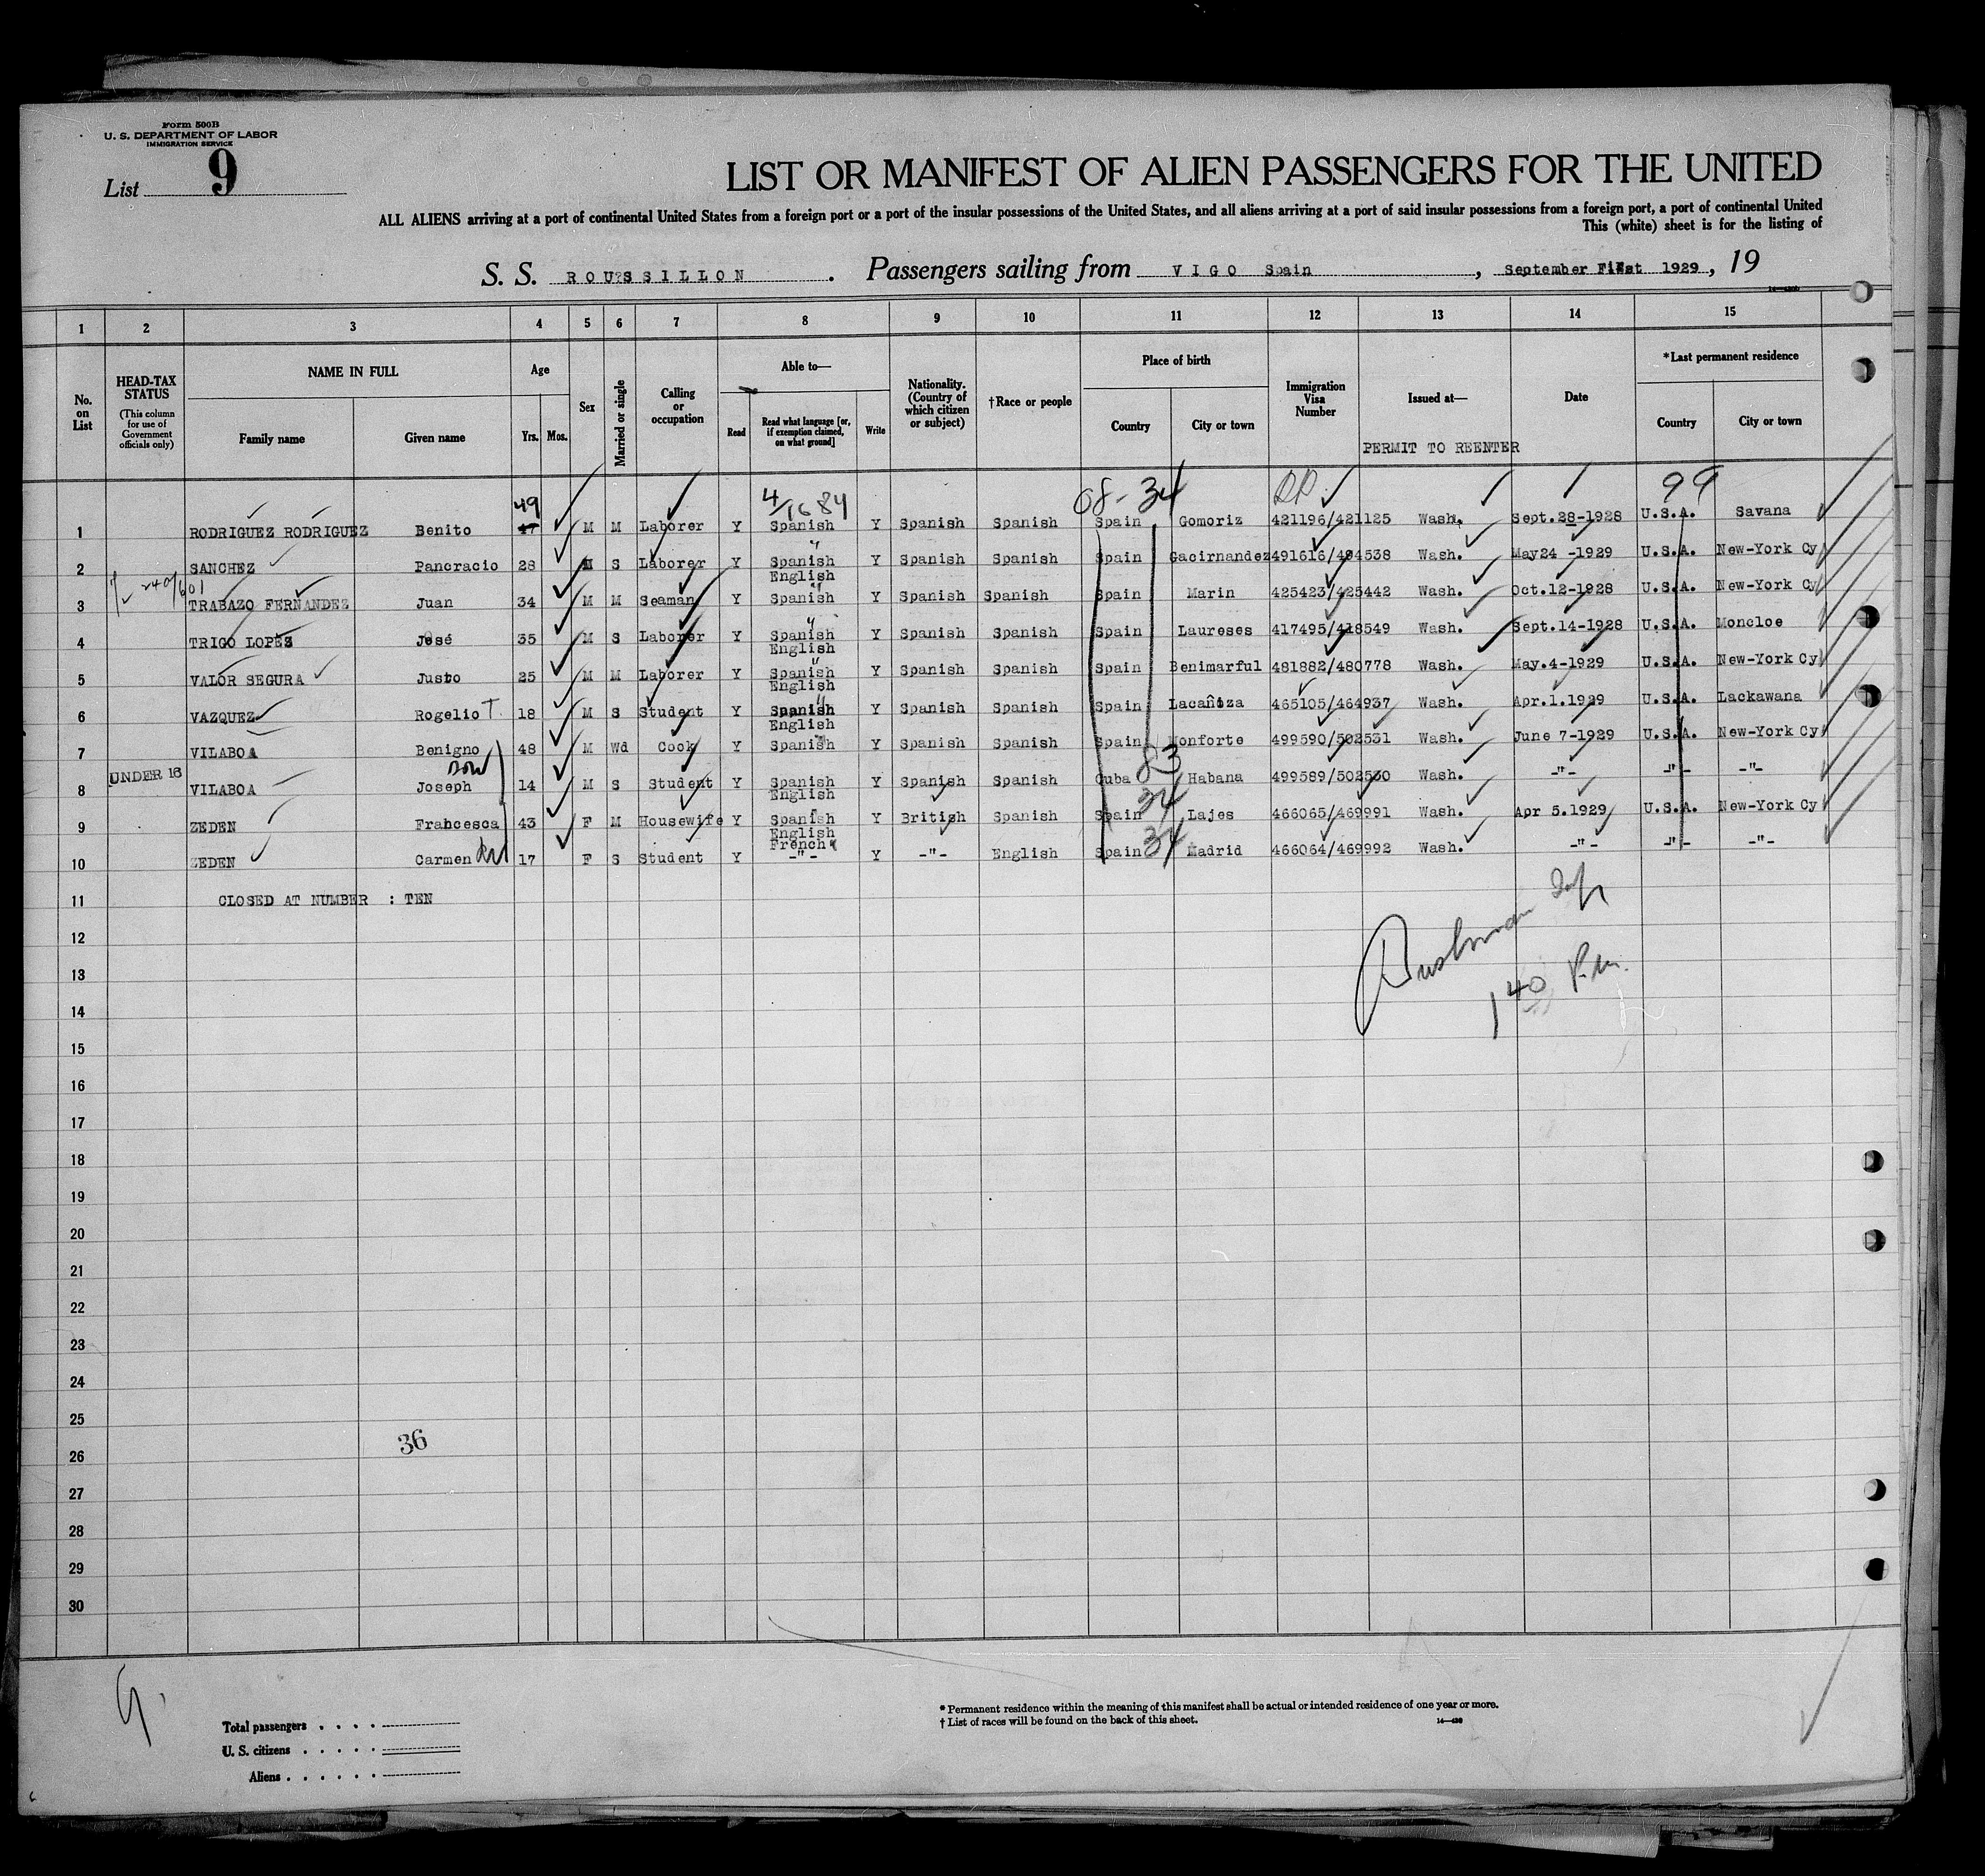 Form 500B
U. S. DEPARTMENT OF LABOR
IMMIGRATION SERVICE
List 9
LIST OR MANIFEST OF ALIEN PASSENGERS FOR THE UNITED
ALL ALIENS arriving at a port of continental United States from a foreign port or a port of the insular possessions of the United States, and all aliens arriving at a port of said insular possessions from a foreign port, a port of continental United
This (white) sheet is for the listing of
S. S. ROUSSILLON. Passengers sailing from VIGO Spain, September First 1929, 19
1 2 3 4 5 6 7 8 9 10 11 12 13 14 15
No. on List
HEAD-TAX STATUS (This column for use of Government officials only)
NAME IN FULL
Family name Given name
Age
Yrs. Mos.
Sex
Married or single
Calling or occupation
Able to—
Read Read what language [or, if exemption claimed, on what ground] Write
Nationality. (Country of which citizen or subject)
†Race or people
Place of birth
Country City or town
Immigration Visa Number
Issued at—
PERMIT TO REENTER
Date
*Last permanent residence
Country City or town
49 4/16 84 08-34 99
1 RODRIGUEZ RODRIGUEZ Benito 47 M M Laborer Y Spanish Y Spanish Spanish Spain Gomoriz 421196/421125 Wash. Sept.28-1928 U.S.A. Savana
2 SANCHEZ Pancracio 28 M S Laborer Y Spanish English Y Spanish Spanish Spain Gacirnandez 491616/494538 Wash. May24 -1929 U.S.A. New-York Cy
3 TRABAZO FERNANDEZ Juan 34 M M Seaman Y Spanish Y Spanish Spanish Spain Marin 425423/425442 Wash. Oct.12-1928 U.S.A. New-York Cy
4 TRIGO LOPES José 35 M S Laborer Y Spanish English Y Spanish Spanish Spain Laureses 417495/418549 Wash. Sept.14-1928 U.S.A. Moncloe
5 VALOR SEGURA Justo 25 M M Laborer Y Spanish English Y Spanish Spanish Spain Benimarful 481882/480778 Wash. May.4-1929 U.S.A. New-York Cy
6 VAZQUEZ Rogelio T 18 M S Student Y Spanish English Y Spanish Spanish Spain Lacañiza 465105/464937 Wash. Apr.1.1929 U.S.A. Lackawana
7 VILABOA Benigno 48 M Wd Cook Y Spanish Y Spanish Spanish Spain Monforte 499590/502531 Wash. June 7-1929 U.S.A. New-York Cy
son 83
UNDER 16
8 VILABOA Joseph 14 M S Student Y Spanish English Y Spanish Spanish Cuba Habana 499589/502530 Wash. -"- -"- -"-
34
9 ZEDEN Francesca 43 F M Housewife Y Spanish English French Y British Spanish Spain Lajes 466065/469991 Wash. Apr 5.1929 U.S.A. New-York Cy
34
10 ZEDEN Carmen 17 F S Student Y -"- Y -"- English Spain Madrid 466064/469992 Wash. -"- -"- -"-
11 CLOSED AT NUMBER : TEN
12
13
140 P.m.
14
15
16
17
18
19
20
21
22
23
24
25
36
26
27
28
29
30
* Permanent residence within the meaning of this manifest shall be actual or intended residence of one year or more.
† List of races will be found on the back of this sheet.
Total passengers
U. S. citizens
Aliens